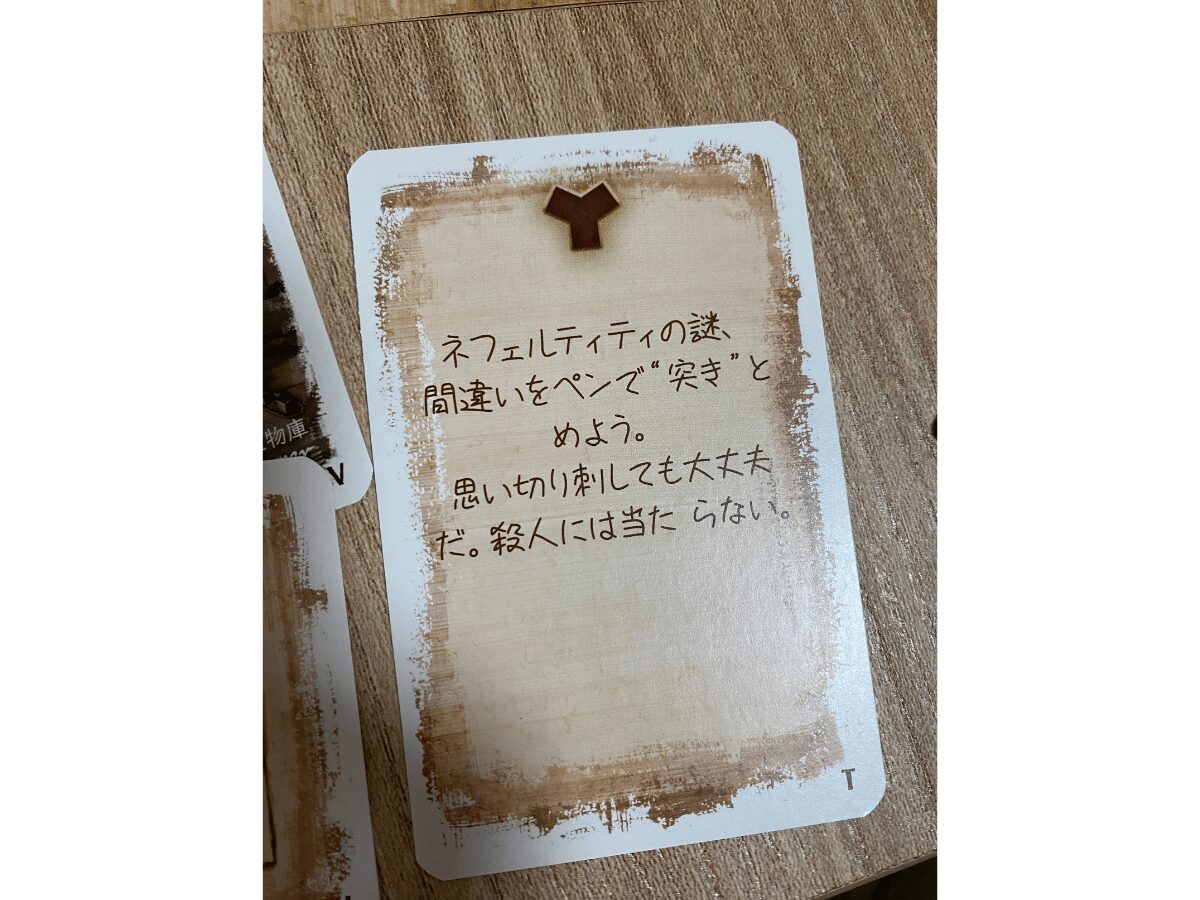 ネフェルティティの謎、
間違いをペンで“突き”と
めよう。
思い切り刺しても大丈夫
だ。殺人には当た らない。
T
物庫
V